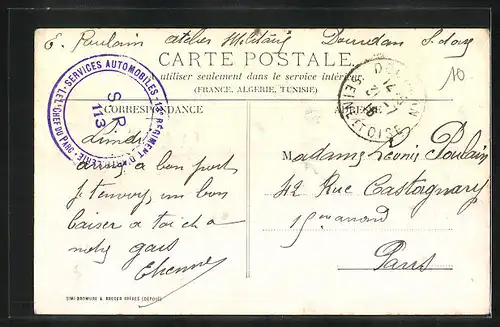 E. Poulain atelier Militaire Dourdan S. et oise
CARTE POSTALE.
utiliser seulement dans le service intérieur
(FRANCE, ALGERIE, TUNISIE)
10
SERVICES AUTOMOBILES - 12e REGIMENT D'ARTILLERIE
S P
113
DOURDAN
SEINE ET OISE
CORRESPONDANCE
Lundi
arrivé a bon port
je t'envoie un bon
baiser a toi et a
notre gars
Etienne
Madame Léonis Poulain
42 Rue Castagnary
15e
Paris
SIMI-BROMURE A. BREGER FRÈRES (DÉPOSÉ)